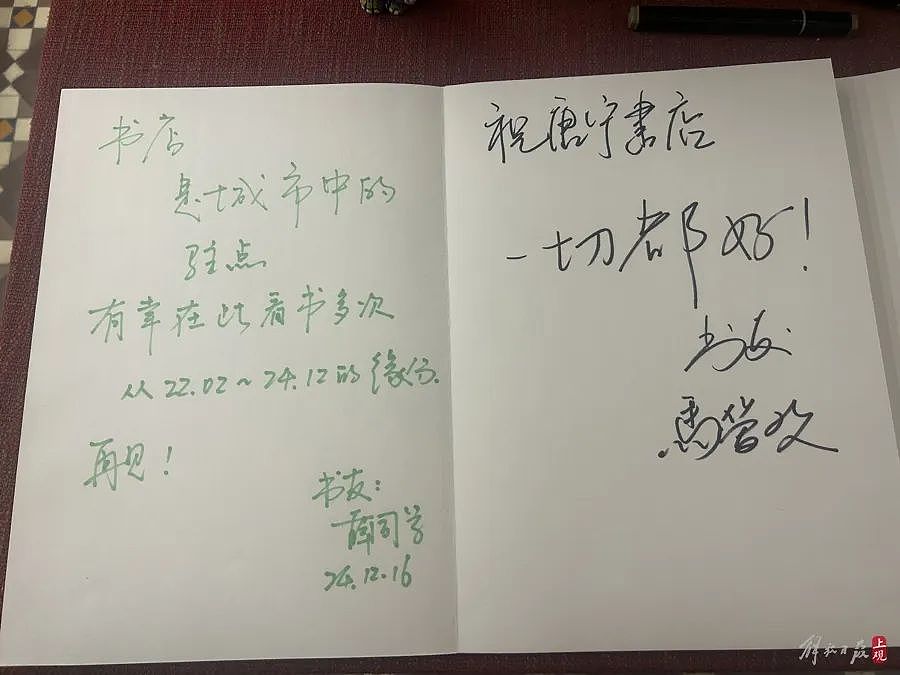 书店
是城市中的
驻点
有幸在此看书多次
从22.02~24.12的缘分.
再见!
书友:
薛同学
24.12.16
祝唐宁書店
一切都好!
书友
馬
解放日报
上观